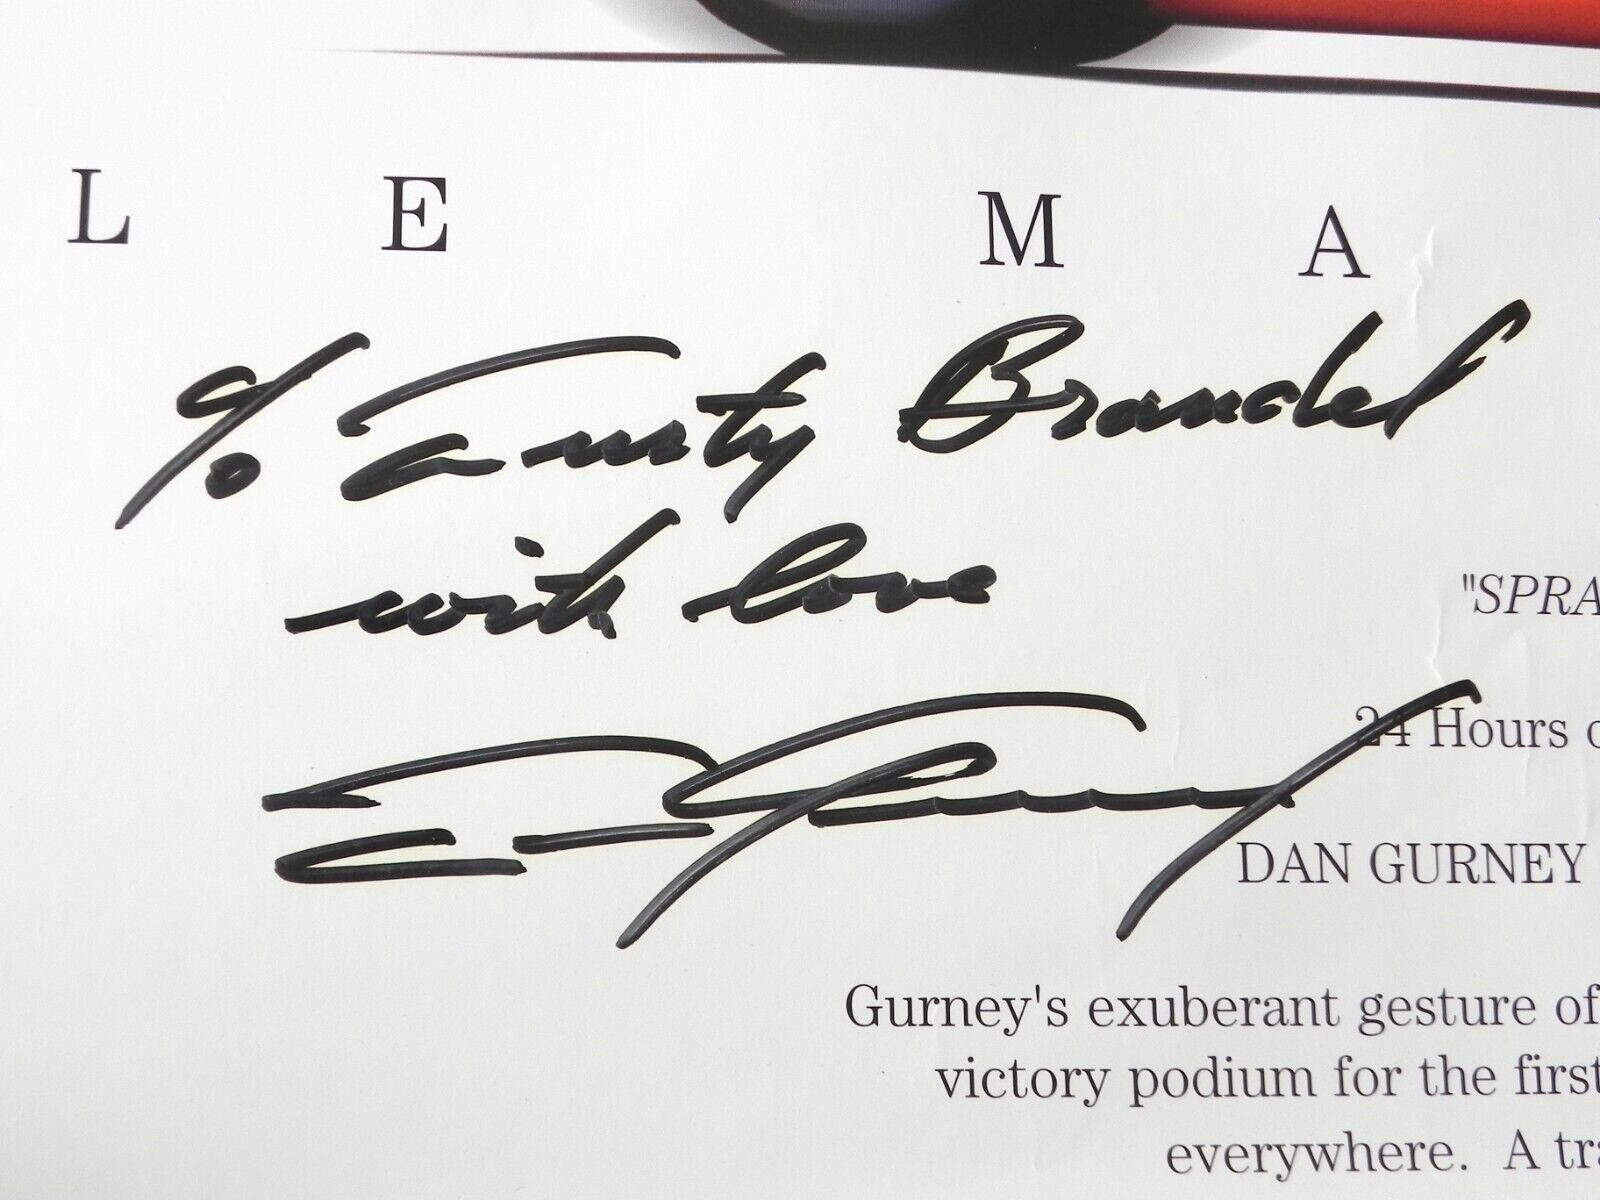 L E M A
To Rusty Brandel
with love
"SPRA
24 Hours o
Dan Gurney
DAN GURNEY
Gurney's exuberant gesture of
victory podium for the first
everywhere. A tra